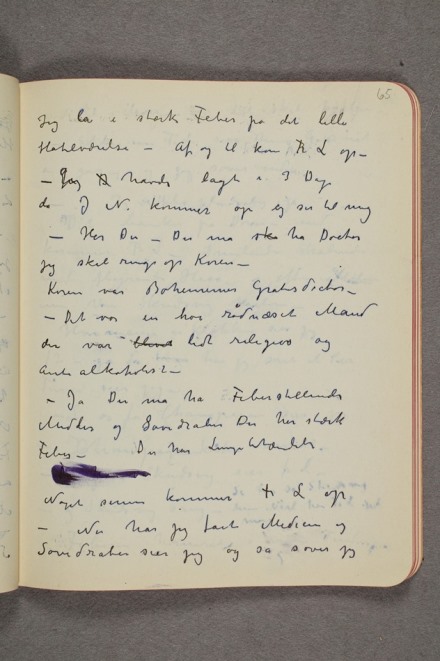 65
Jeg lå i stærk Feber på det lille
Hotelværelse – Af og til kom Fr L op –
– Jeg havde lagt i 3 Dage
da J N. kommer op og ser til mig
– Hør Du – Du må ha Doctor
jeg skal ringe op Koren –
Koren var Bohemernes Gratisdoctor –
– Det var en hor rødnæset Mand
der var lidt religiøs og
anti alkoholist –
– Ja Du må ha Feberstillende
Midler og Sovedråber Du har stærk
Feber – Du har Lungebetændelse.
Noget senere kommer Fr L op
– Nu har jeg fåt Medicin og
Sovedråber siger jeg og så sover jeg